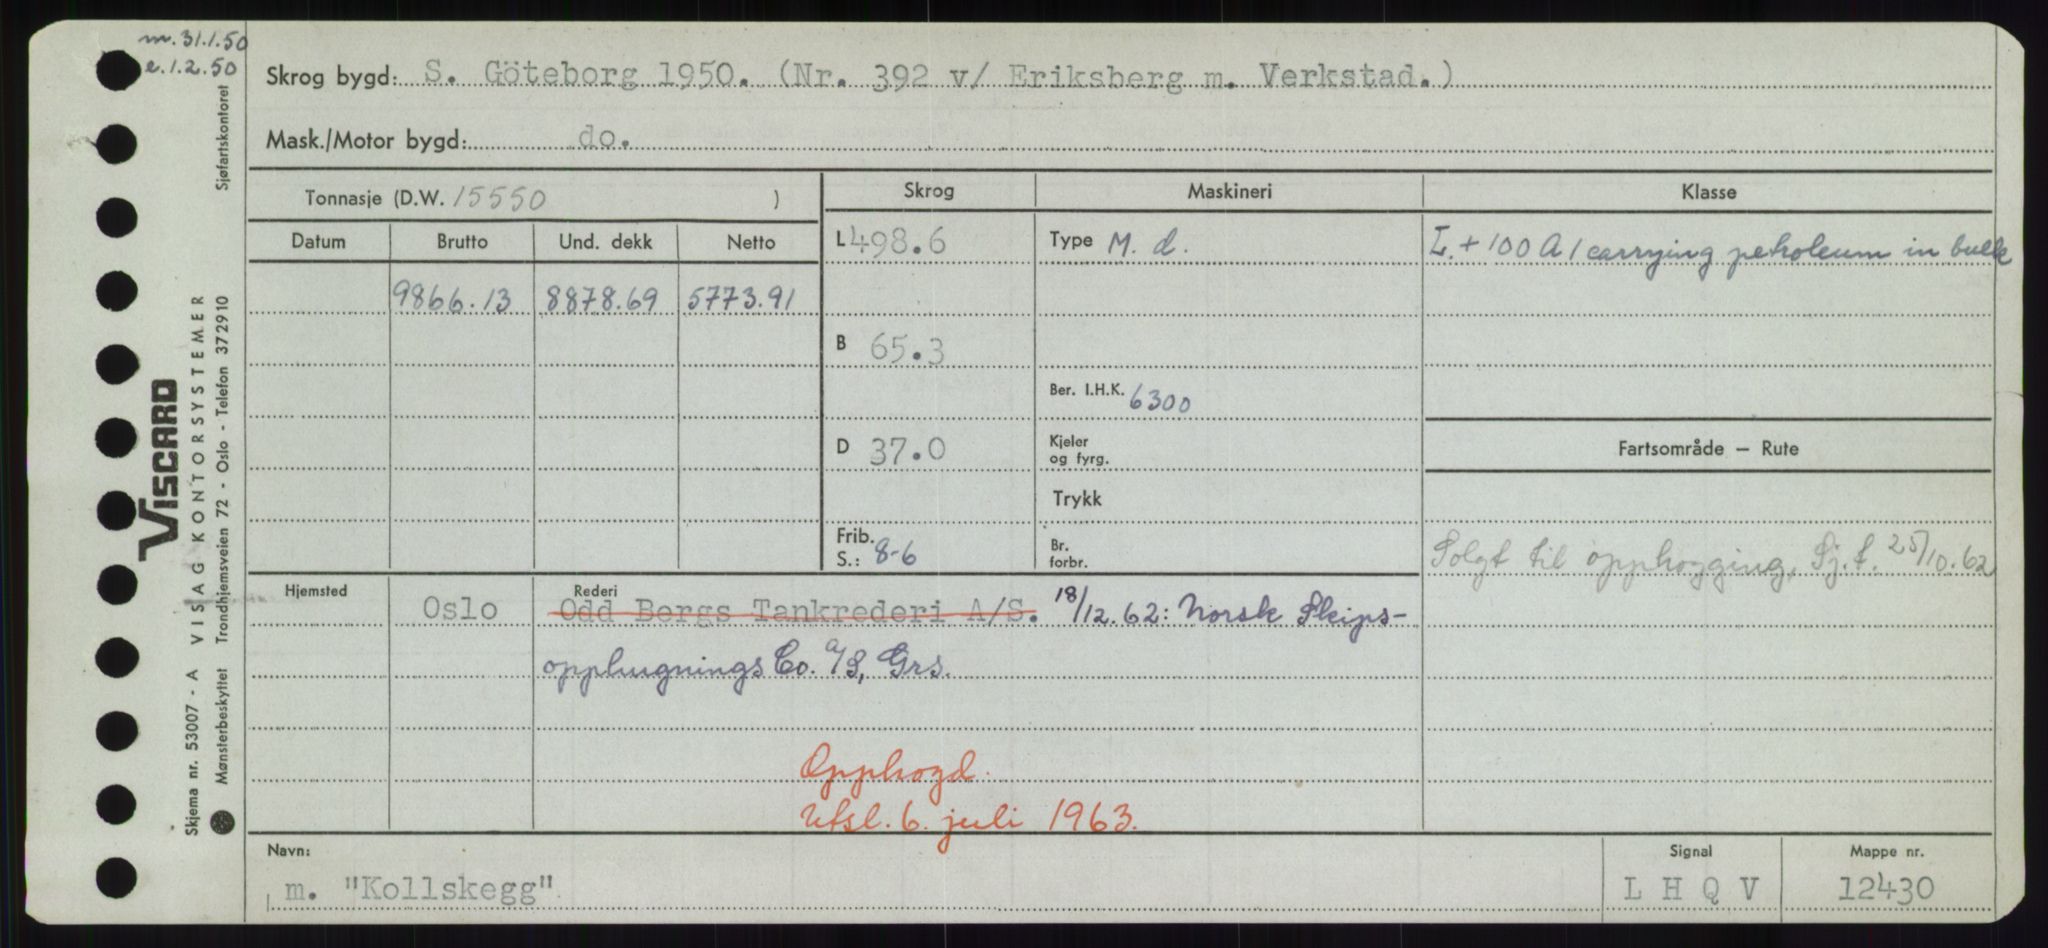 m. 31.1.50
e. 1.2.50
Skrog bygd: S. Göteborg 1950. (Nr. 392 v/ Eriksberg m. Verkstad.)
Mask./Motor bygd: do.
Tonnasje (D.W. 15550 )
Skrog
Maskineri
Klasse
Datum Brutto Und. dekk Netto
L 498.6
Type M. d.
L. + 100 A 1 carrying petroleum in bulk
9866.13 8878.69 5773.91
B 65.3
Ber. I.H.K. 6300
D 37.0
Kjeler
og fyrg.
Fartsområde — Rute
Trykk
Frib.
S.: 8-6
Br.
forbr.
Solgt til opphogging, Sj.f. 25/10.62
Hjemsted
Rederi
Oslo Odd Bergs Tankrederi A/S. 18/12.62: Norsk Skips-
opphugnings Co. A/S, Grs.
Opphogd.
Utsl. 6. juli 1963.
Navn:
Signal
Mappe nr.
m. "Kollskegg"
L H Q V
12430
VISCARD
Skjema nr. 53007 - A VISAG KONTORSYSTEMER
Mønsterbeskyttet Trondhjemsveien 72 - Oslo - Telefon 372910 Sjøfartskontoret